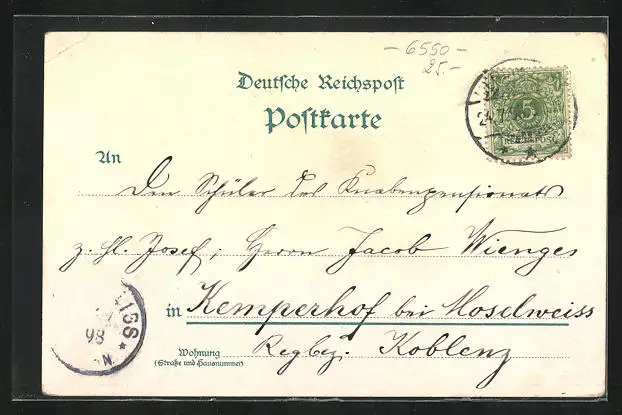 – 6550 –
25.–
Deutsche Reichspost
Postkarte
5
REICHSPOST
An
Den Schüler des Knabenpensionats
z. hl. Josef, Herrn Jacob Wienges
in Kemperhof bei Moselweiss
Wohnung
(Straße und Hausnummer)
Regbez. Koblenz
ISS
98
N.